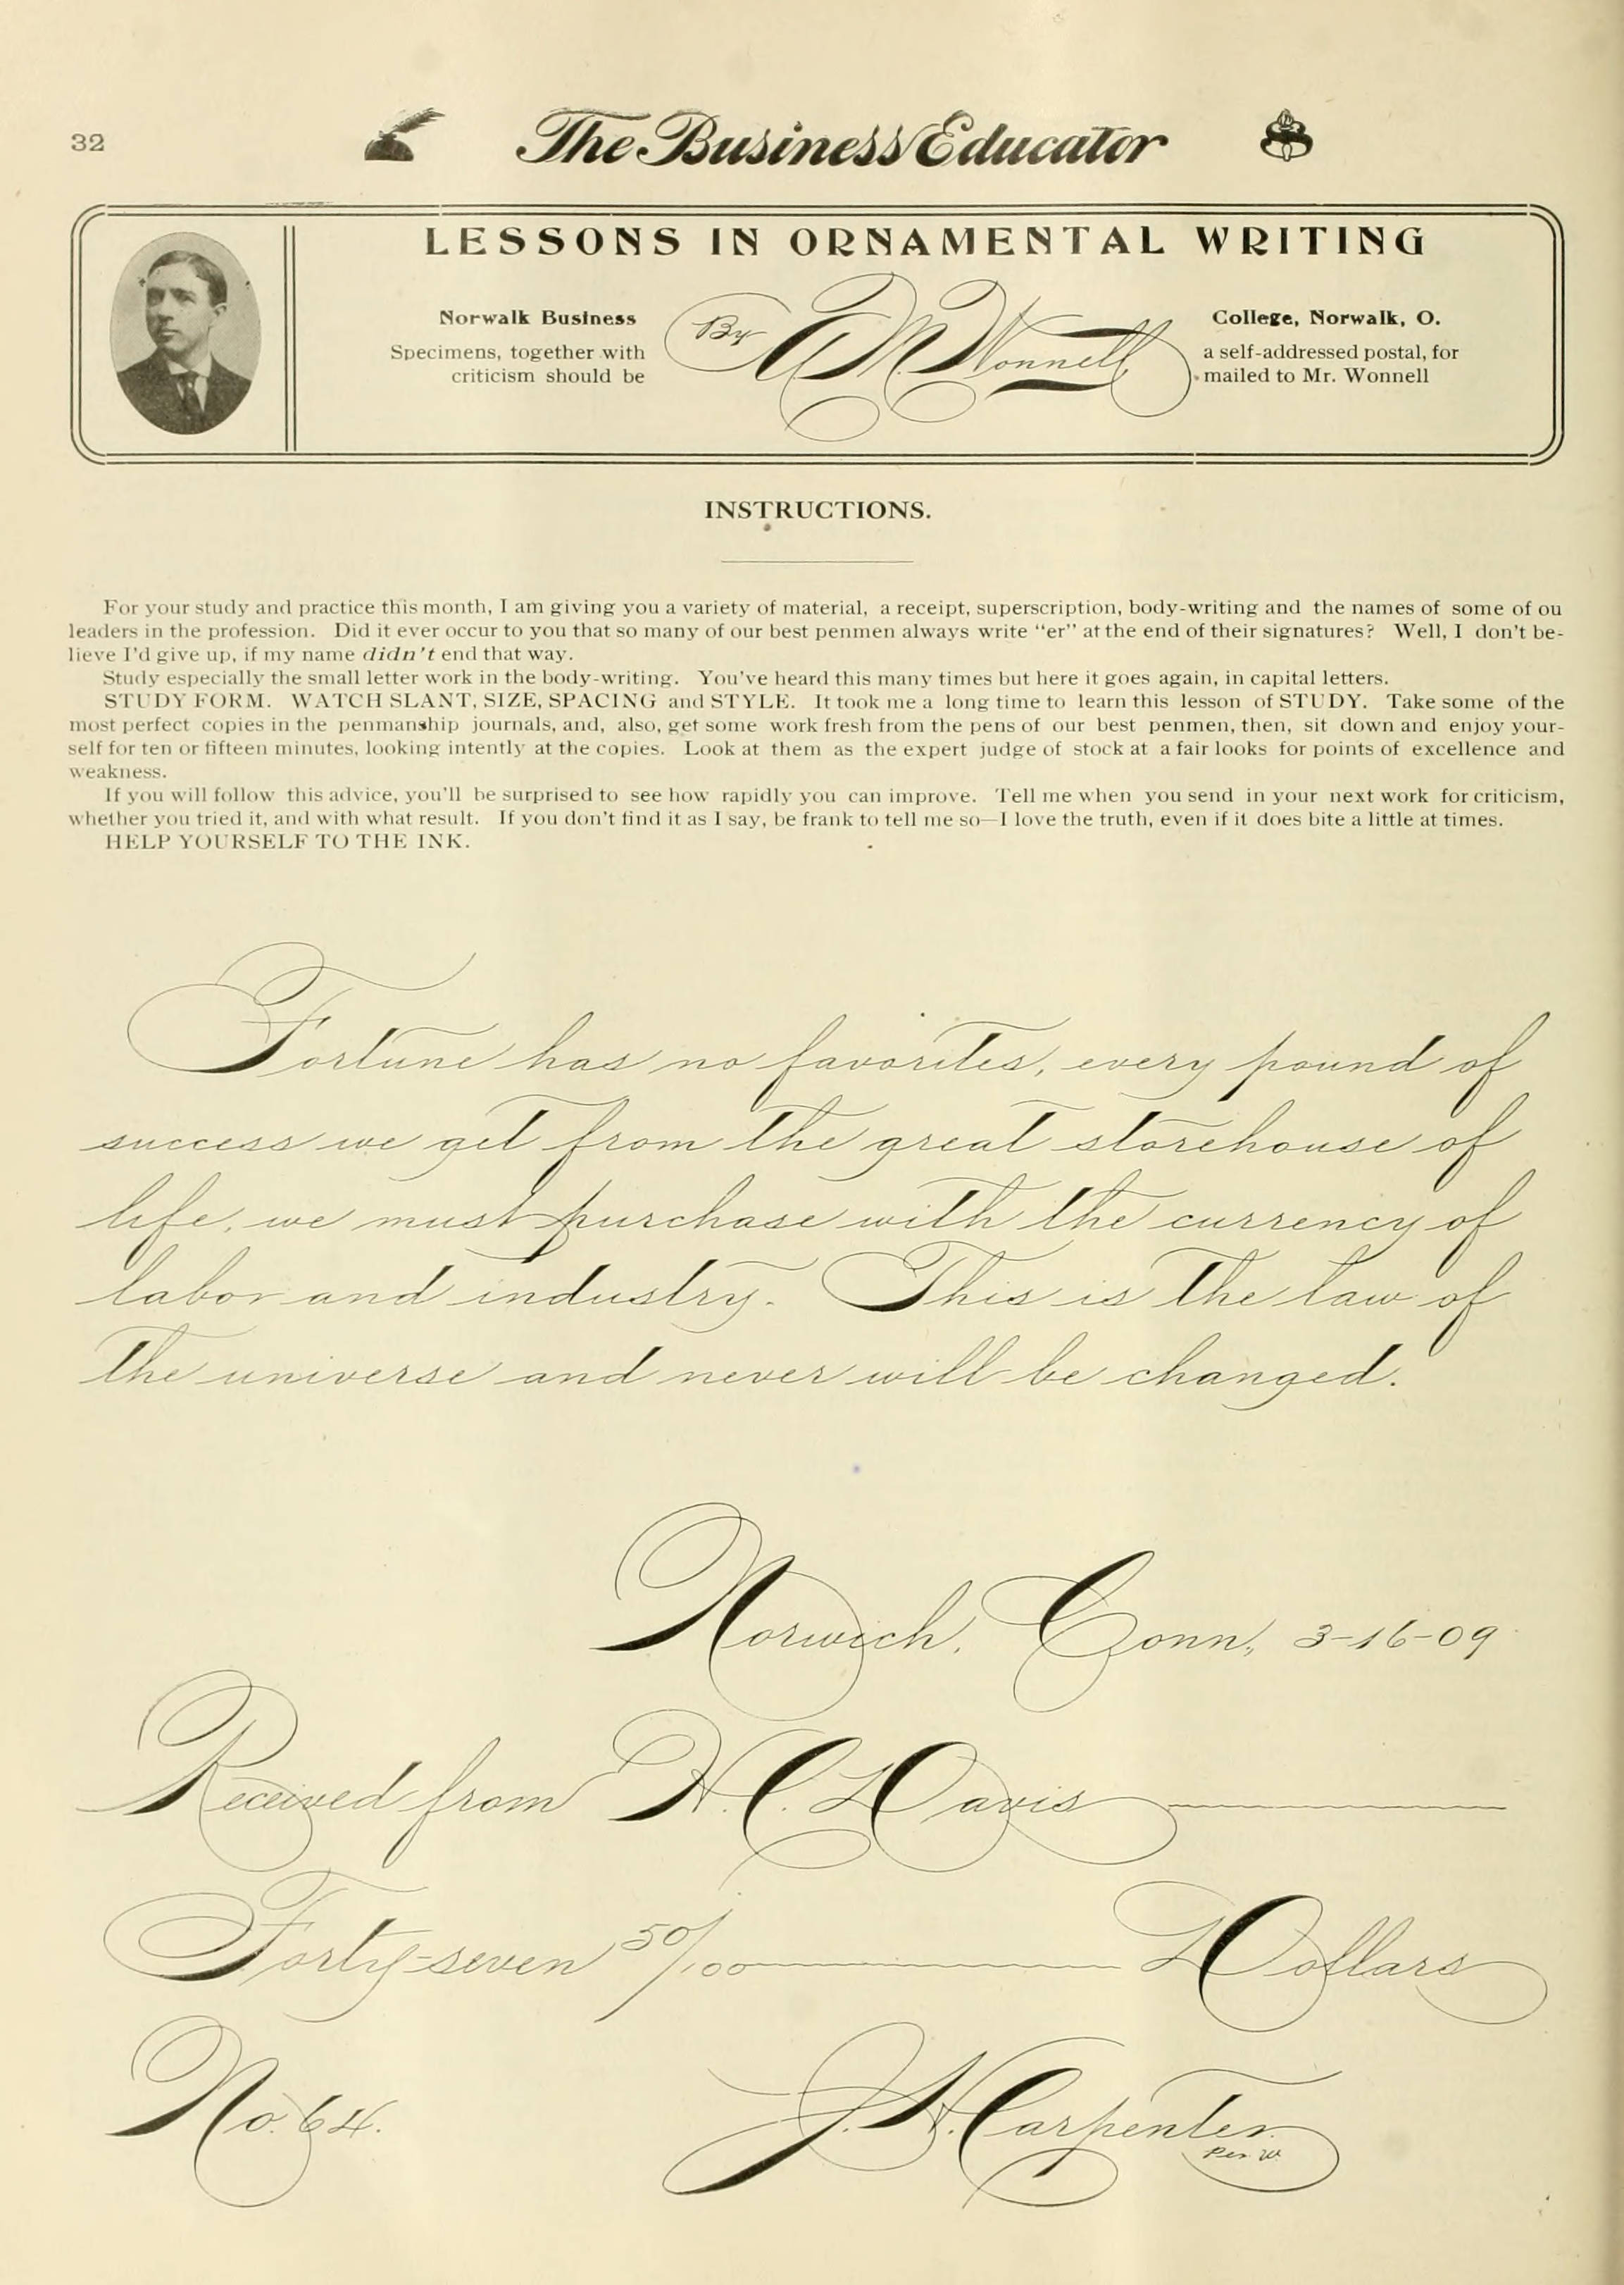 32
The Business Educator
LESSONS IN ORNAMENTAL WRITING
Norwalk Business By A M. Wonnell College, Norwalk, O.
Specimens, together with a self-addressed postal, for
criticism should be mailed to Mr. Wonnell
INSTRUCTIONS.
For your study and practice this month, I am giving you a variety of material, a receipt, superscription, body-writing and the names of some of ou
leaders in the profession. Did it ever occur to you that so many of our best penmen always write "er" at the end of their signatures? Well, I don't be-
lieve I'd give up, if my name didn't end that way.
Study especially the small letter work in the body-writing. You've heard this many times but here it goes again, in capital letters.
STUDY FORM. WATCH SLANT, SIZE, SPACING and STYLE. It took me a long time to learn this lesson of STUDY. Take some of the
most perfect copies in the penmanship journals, and, also, get some work fresh from the pens of our best penmen, then, sit down and enjoy your-
self for ten or fifteen minutes, looking intently at the copies. Look at them as the expert judge of stock at a fair looks for points of excellence and
weakness.
If you will follow this advice, you'll be surprised to see how rapidly you can improve. Tell me when you send in your next work for criticism,
whether you tried it, and with what result. If you don't find it as I say, be frank to tell me so—I love the truth, even if it does bite a little at times.
HELP YOURSELF TO THE INK.
Fortune has no favorites, every pound of
success we get from the great storehouse of
life, we must purchase with the currency of
labor and industry. This is the law of
the universe and never will be changed.
Norwich, Conn., 3-16-09
Received from H. C. Davis
Forty-seven 50/100 Dollars
No. 64. J. H. Carpenter
Per W.